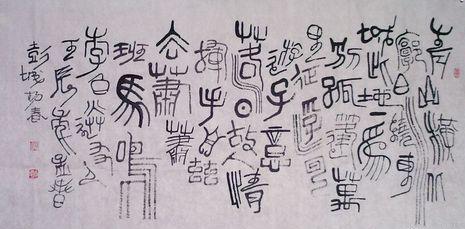 青山橫北
郭白水繞東
城此地一為
別孤蓬萬
里征浮雲
遊子意
落日故人情
揮手自茲
去蕭蕭
班馬鳴
李白送友人
壬辰年孟春
彭城